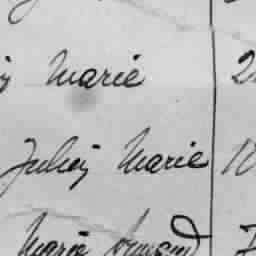 Marie 2
Julien Marie 10
Marie Armand